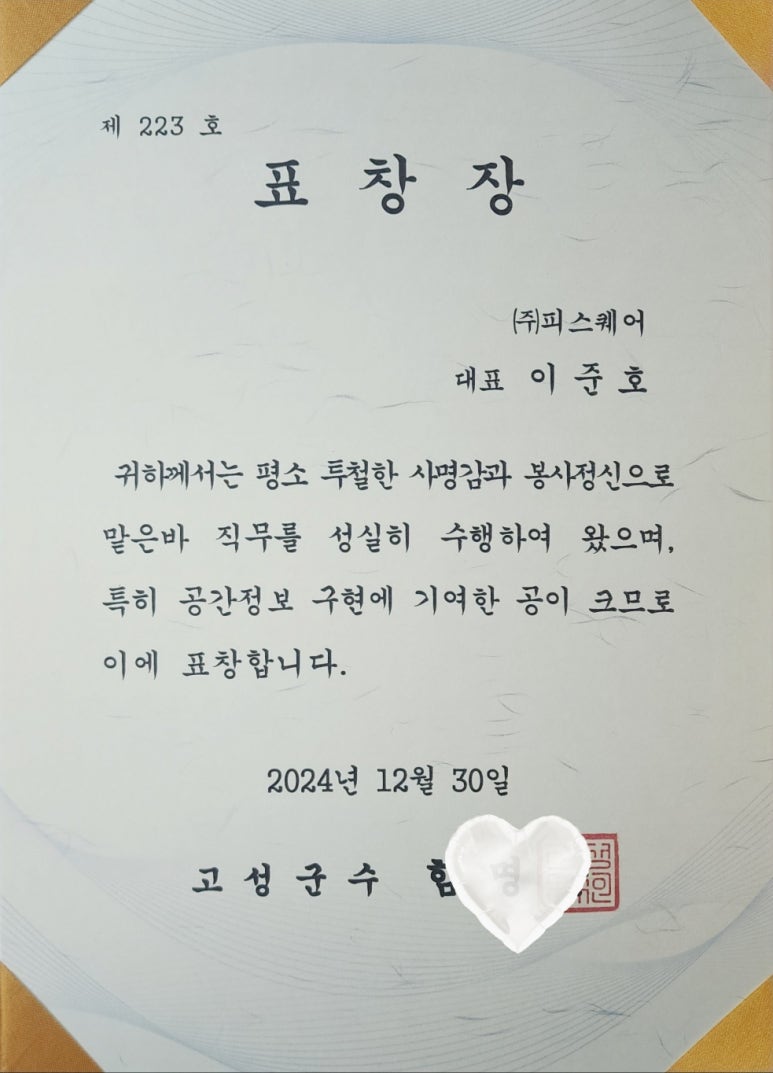 제 223 호
표 창 장
㈜피스퀘어
대표 이 준 호
귀하께서는 평소 투철한 사명감과 봉사정신으로
맡은바 직무를 성실히 수행하여 왔으며,
특히 공간정보 구현에 기여한 공이 크므로
이에 표창합니다.
2024년 12월 30일
고 성 군 수 함 명